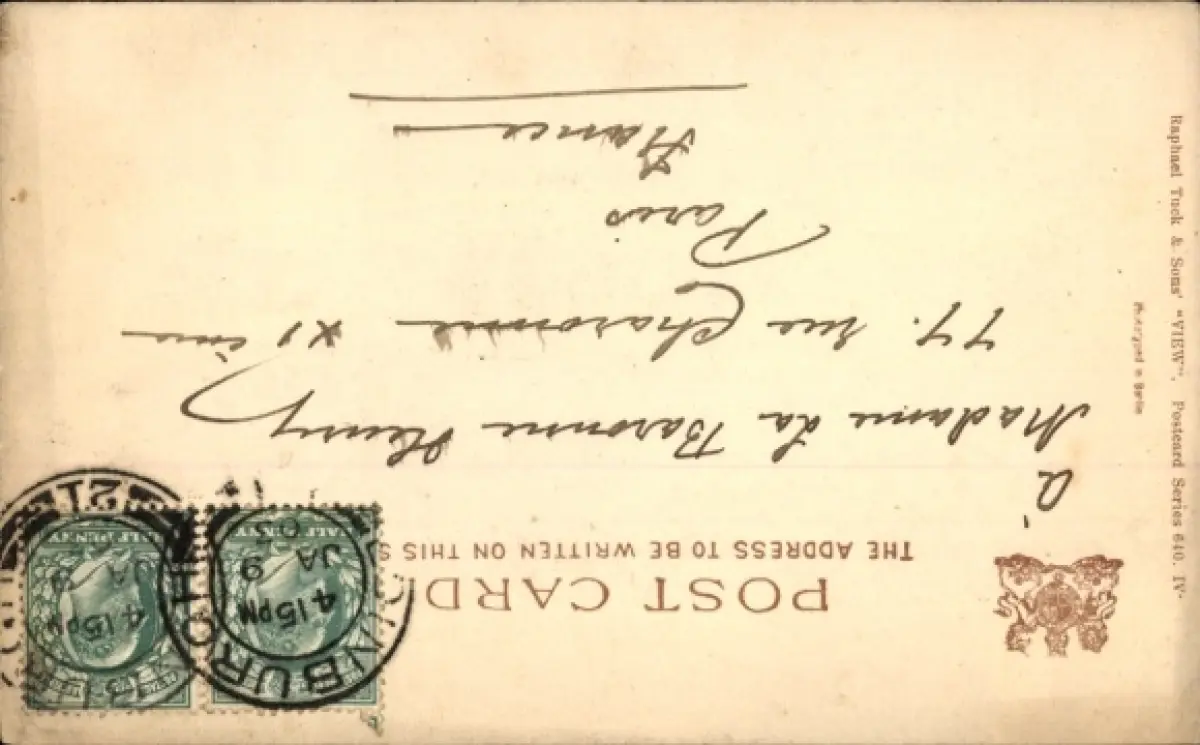 POST CARD
THE ADDRESS TO BE WRITTEN ON THIS S
à
Madame La Baronne Henry
77. rue Charonne XI ème
Paris
France
Raphael Tuck & Sons' "VIEW", Postcard Series 640. IV
Phototyped in Berlin
HALF PENNY
EDINBURGH
4.15PM
JA 9
03
HALF PENNY
4.15PM
JA 9
21